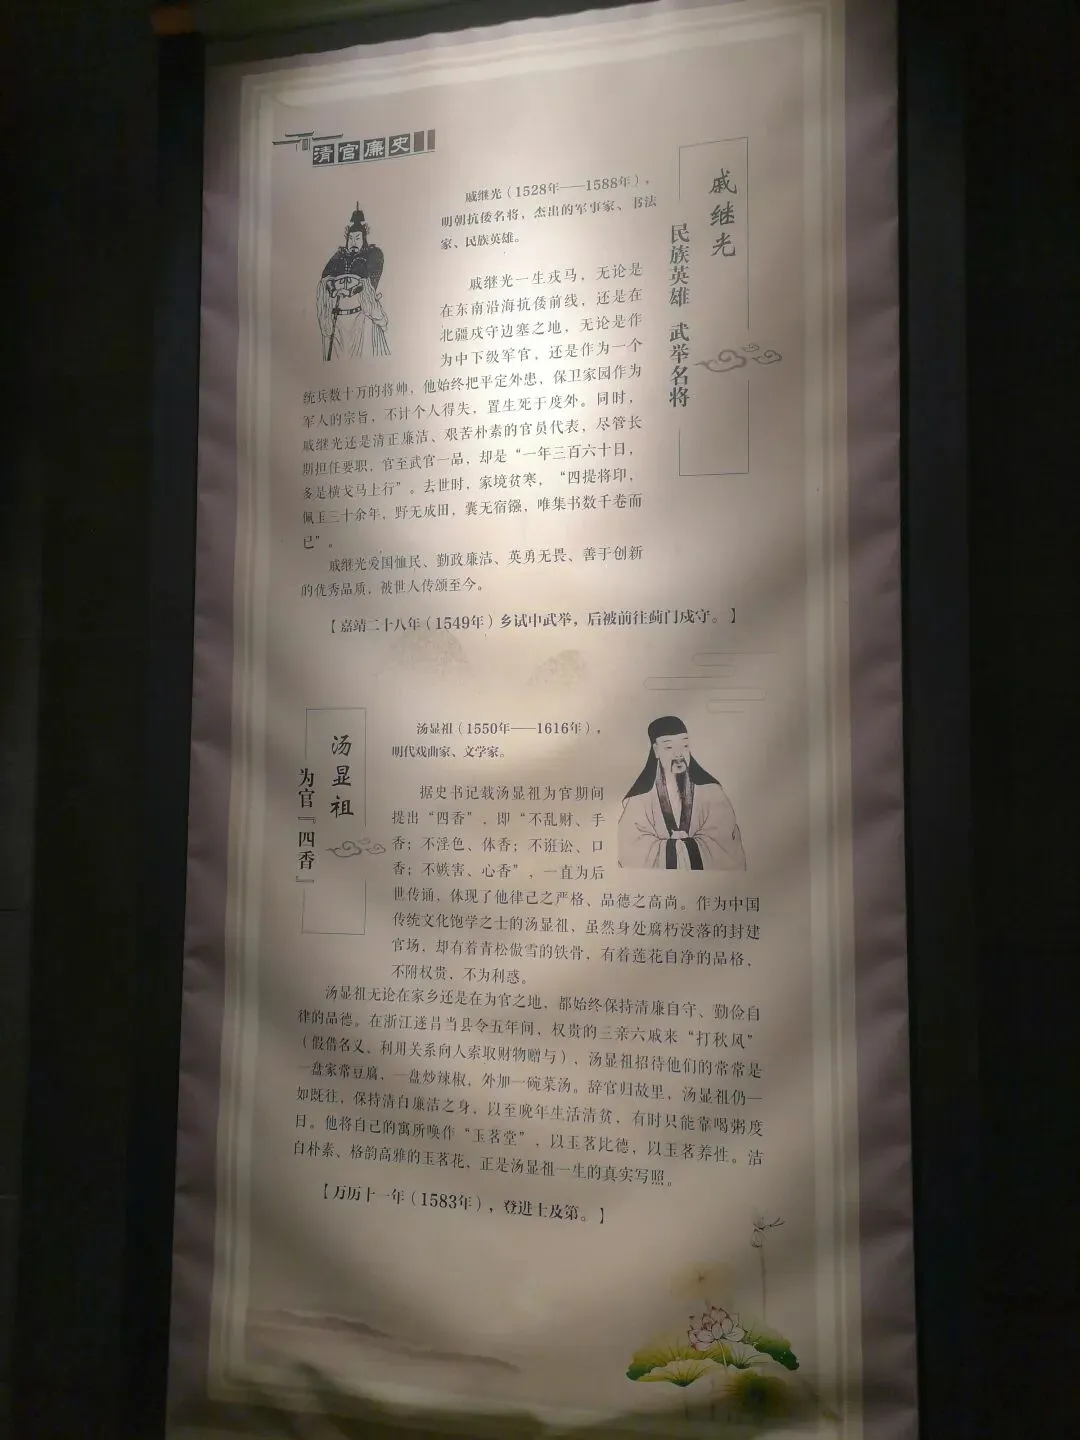 清官廉史
戚继光
民族英雄 武举名将
戚继光（1528年——1588年），
明朝抗倭名将，杰出的军事家、书法
家、民族英雄。
戚继光一生戎马，无论是
在东南沿海抗倭前线，还是在
北疆戍守边塞之地，无论是作
为中下级军官，还是作为一个
统兵数十万的将帅，他始终把平定外患，保卫家园作为
军人的宗旨，不计个人得失，置生死于度外。同时，
戚继光还是清正廉洁、艰苦朴素的官员代表，尽管长
期担任要职，官至武官一品，却是“一年三百六十日，
多是横戈马上行”。去世时，家境贫寒，“四提将印，
佩玉三十余年，野无成田，囊无宿镪，唯集书数千卷而
已”。
戚继光爱国恤民、勤政廉洁、英勇无畏、善于创新
的优秀品质，被世人传颂至今。
【嘉靖二十八年（1549年）乡试中武举，后被前往蓟门戍守。】
汤显祖
为官『四香』
汤显祖（1550年——1616年），
明代戏曲家、文学家。
据史书记载汤显祖为官期间
提出“四香”，即“不乱财、手
香；不淫色、体香；不诳讼、口
香；不嫉害、心香”，一直为后
世传诵，体现了他律己之严格、品德之高尚。作为中国
传统文化饱学之士的汤显祖，虽然身处腐朽没落的封建
官场，却有着青松傲雪的铁骨，有着莲花自净的品格，
不附权贵，不为利惑。
汤显祖无论在家乡还是在为官之地，都始终保持清廉自守、勤俭自
律的品德。在浙江遂昌当县令五年间，权贵的三亲六戚来“打秋风”
（假借名义、利用关系向人索取财物赠与），汤显祖招待他们的常常是
一盘家常豆腐、一盘炒辣椒，外加一碗菜汤。辞官归故里，汤显祖仍一
如既往，保持清白廉洁之身，以至晚年生活清贫，有时只能靠喝粥度
日。他将自己的寓所唤作“玉茗堂”，以玉茗比德，以玉茗养性。洁
白朴素、格韵高雅的玉茗花，正是汤显祖一生的真实写照。
【万历十一年（1583年），登进士及第。】